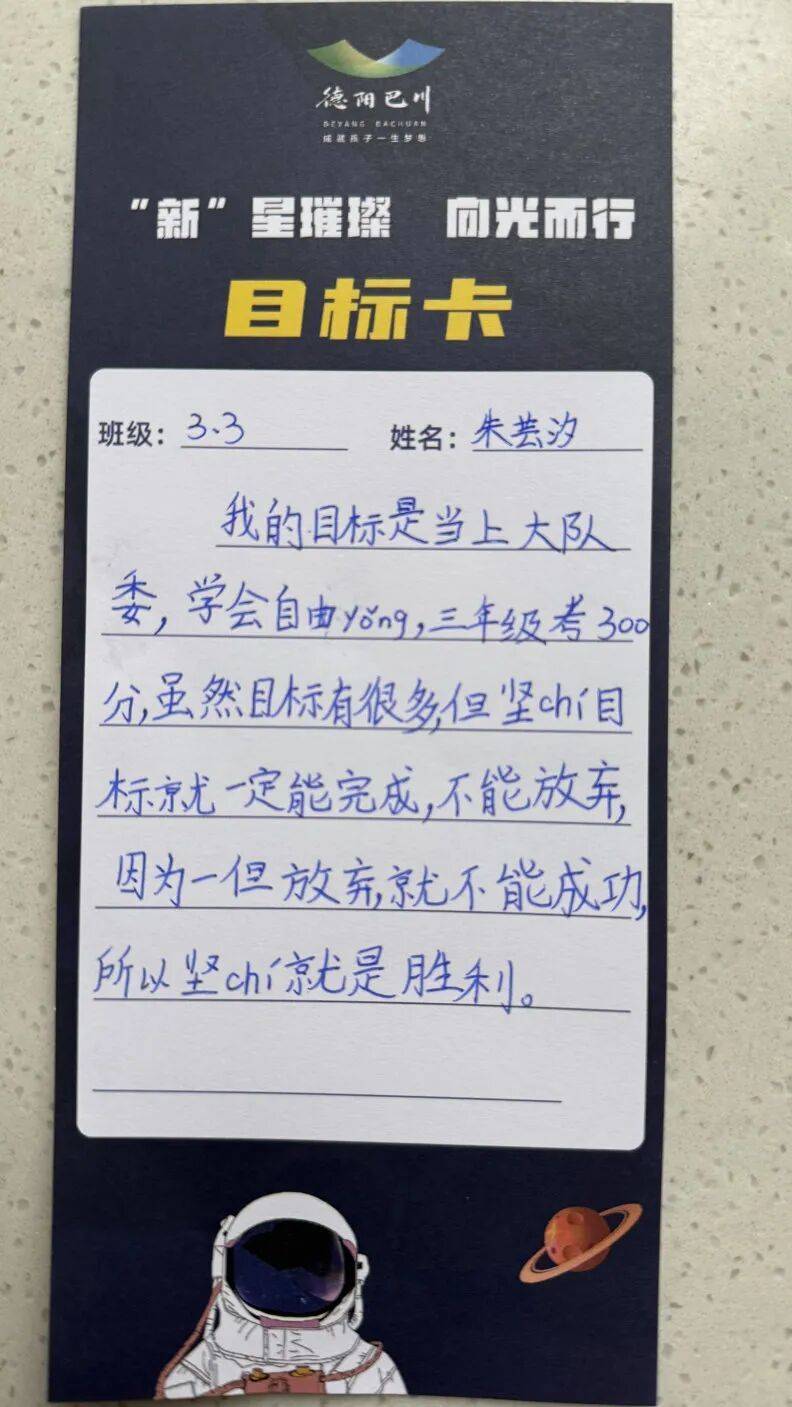 德阳巴川
DEYANG BACHUAN
成就孩子一生梦想
“新”星璀璨 向光而行
目标卡
班级：3.3 姓名：朱芸汐
我的目标是当上大队
委，学会自由yǒng，三年级考300
分，虽然目标有很多，但坚chí目
标就一定能完成，不能放弃，
因为一但放弃，就不能成功，
所以坚chí就是胜利。